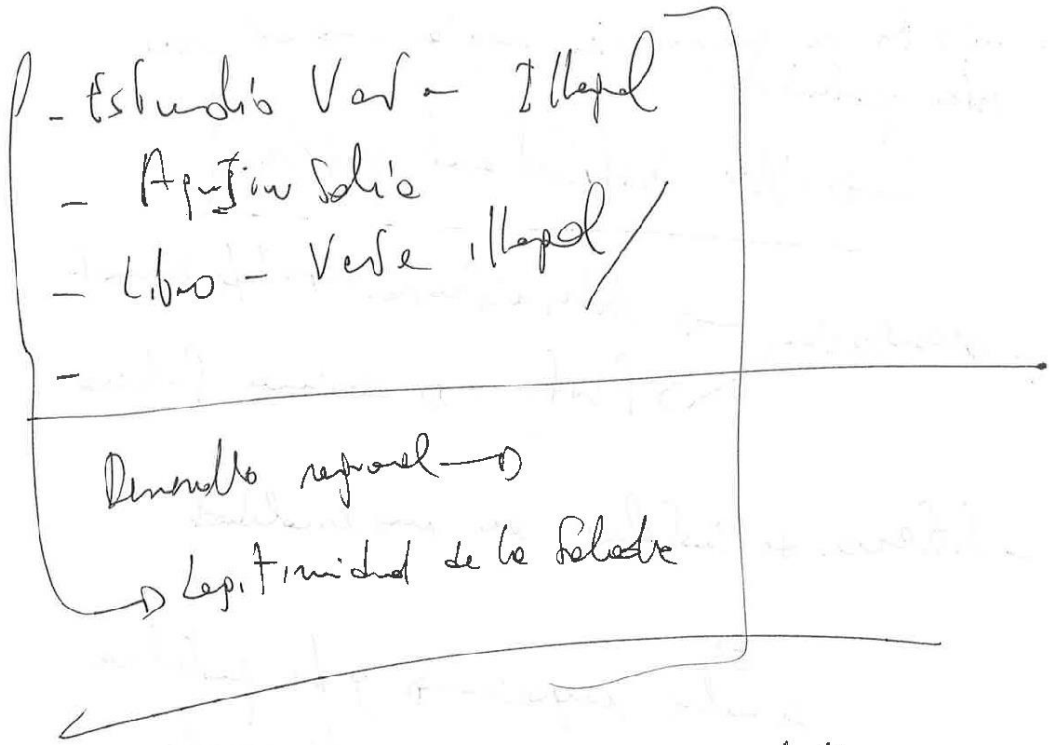 - Estudio Verde Illapel
- Agustín
- Libro - Verde illapel /
-
Desarrollo regional →
→ Legitimidad de la